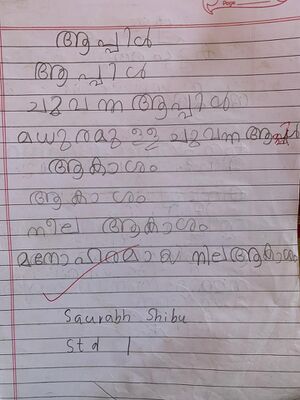 Page
ആപ്പിൾ
ആപ്പിൾ
ചുവന്ന ആപ്പിൾ
മധുരമുള്ള ചുവന്ന ആപ്പിൾ
ആകാശം
ആകാശം
നീല ആകാശം
മനോഹരമായ നീല ആകാശം
Saurabh Shibu
Std 1